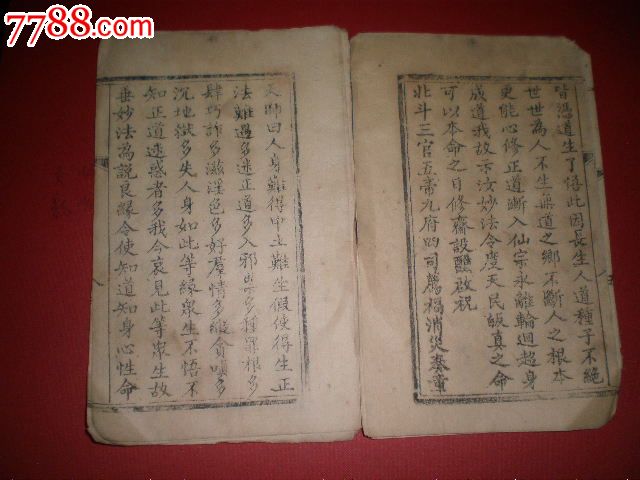 7788.com
皆憑道生了悟此因長生人道種子不絕
世世為人不生無道之鄉不斷人之根本
更能心修正道漸入仙宗永離輪迴超身
成道我故示汝妙法令度天民皈真之命
可以本命之日修齋設醮啟祝
北斗三官五帝九府四司薦福消災奏章
天師曰人身難得中土難生假使得生正
法難遇多迷正道多入邪多種罪根多
肆巧詐多滋淫色多好羣情多縱貪嗔多
沉地獄多失人身如此等緣眾生不悟不
知正道迷惑者多我今哀見此等眾生故
垂妙法為說良緣令使知道知身心性命